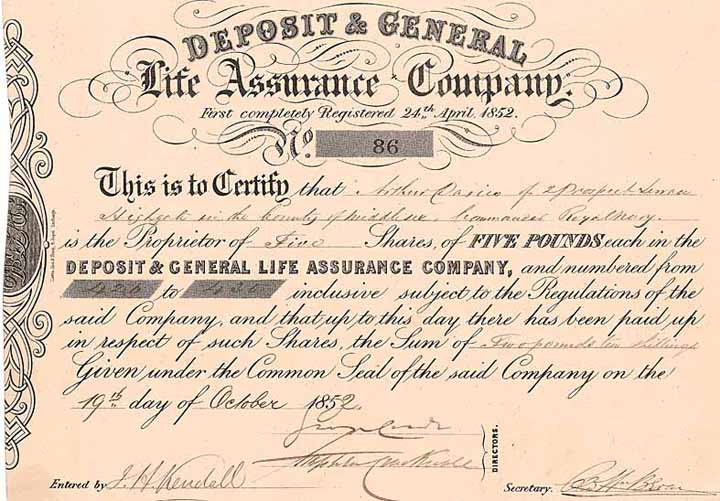 DEPOSIT & GENERAL
Life Assurance Company.
First completely Registered 24th April, 1852.
No. 86
This is to Certify that Arthur Davies of 2 Prospect Terrace
Highgate in the County of Middlesex, Commander Royal Navy.
is the Proprietor of Five Shares, of FIVE POUNDS each in the
DEPOSIT & GENERAL LIFE ASSURANCE COMPANY, and numbered from
426 to inclusive subject to the Regulations of the
said Company, and that up to this day there has been paid up
in respect of such Shares, the Sum of Two pounds ten shillings
Given under the Common Seal of the said Company on the
19th day of October 1852.
DIRECTORS.
Entered by J. H. Kendall
Secretary.